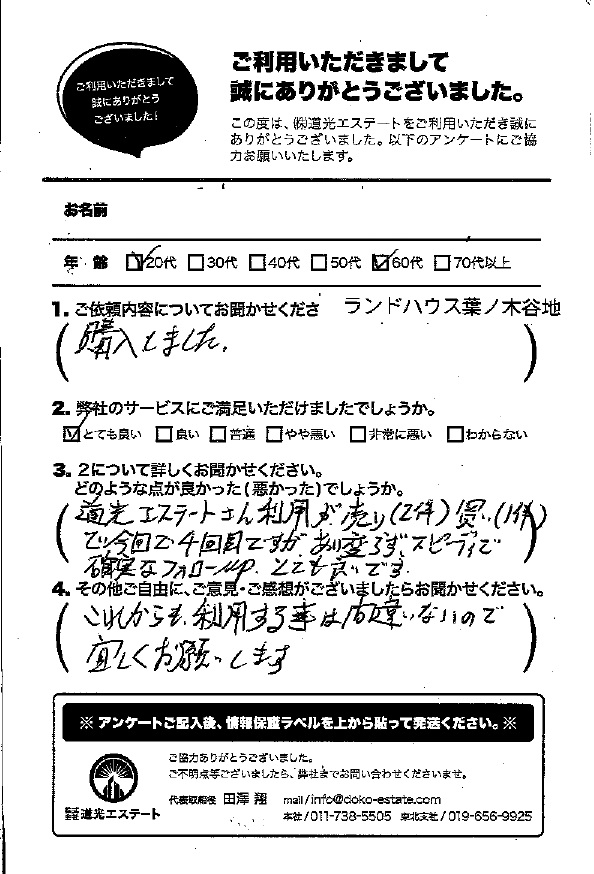 ご利用いただきまして
誠にありがとう
ございました!
ご利用いただきまして
誠にありがとうございました。
この度は、㈱道光エステートをご利用いただき誠に
ありがとうございました。以下のアンケートにご協
力お願いいたします。
お名前
年 齢 20代 30代 40代 50代 60代 70代以上
1. ご依頼内容についてお聞かせくださ ランドハウス葉ノ木谷地
購入しました。
2. 弊社のサービスにご満足いただけましたでしょうか。
とても良い 良い 普通 やや悪い 非常に悪い わからない
3. 2について詳しくお聞かせください。
どのような点が良かった(悪かった)でしょうか。
道光エステートさん利用が売り(2件)買い(1件)
で今回で4回目ですが、あい変らず、スピーディで
確実なフォローup. とても良いです.
4. その他ご自由に、ご意見・ご感想がございましたらお聞かせください。
これからも、利用する事は間違いないので
宜しくお願いします
※ アンケートご記入後、情報保護ラベルを上から貼って発送ください。※
ご協力ありがとうございました。
ご不明点等ございましたら、弊社までお問い合わせくださいませ。
代表取締役 田澤 翔 mail/info@doko-estate.com
株式会社 道光エステート 本社/011-738-5505 東北支社/019-656-9925